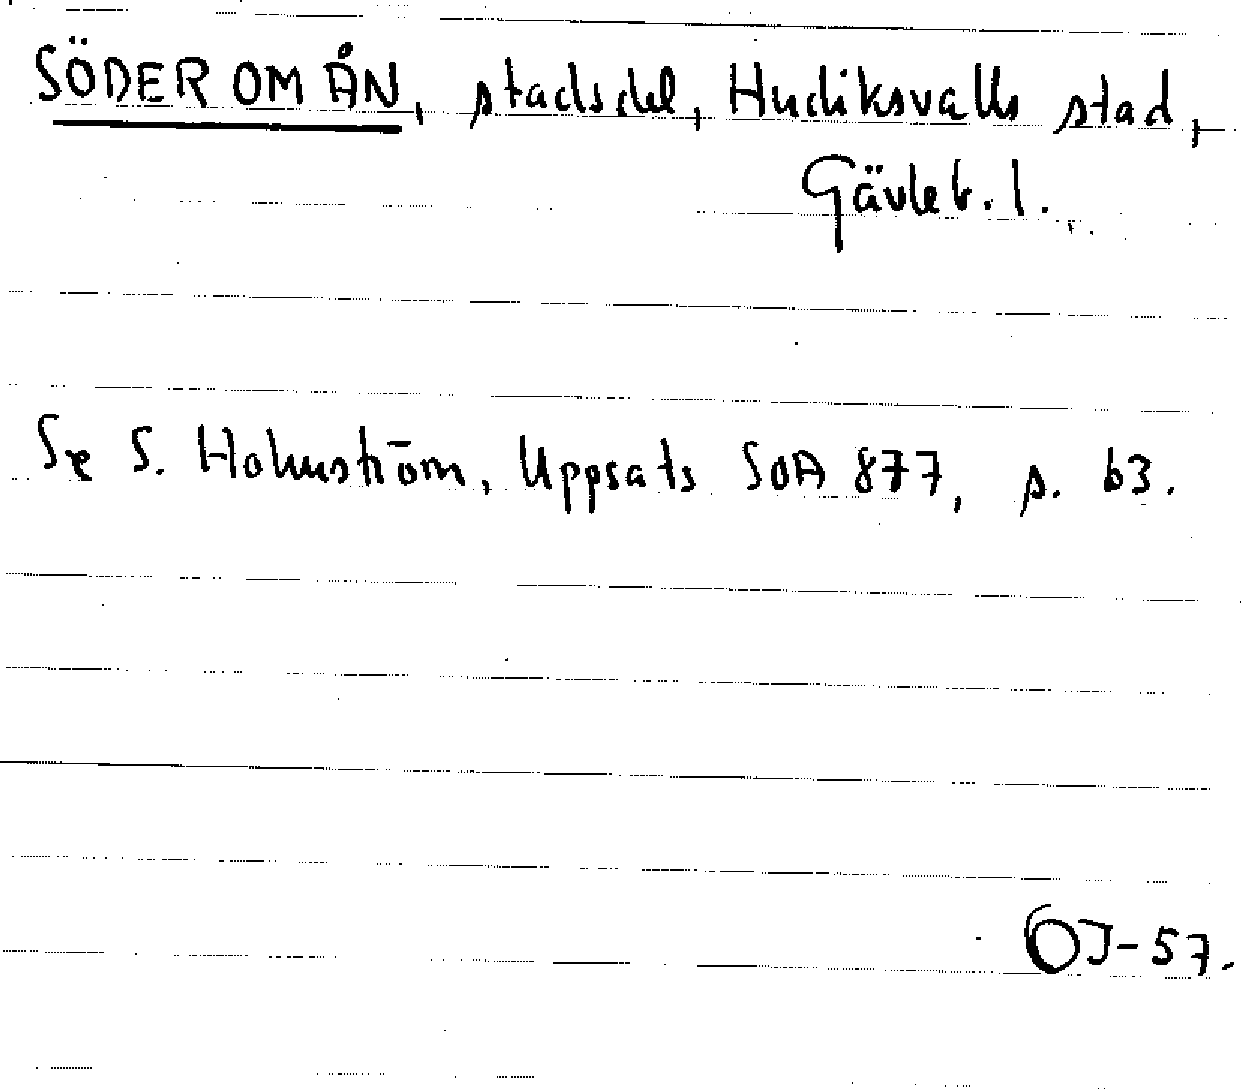 SÖDER OM ÅN, stadsdel, Hudiksvalls stad,
Gävleb. l.
Se S. Holmström, Uppsats SOA 877, s. 63.
OJ-57.